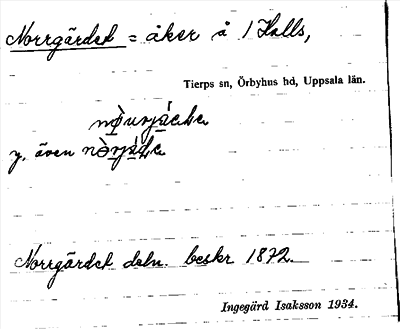 Norrgärdet = åker å /Halls,
Tierps sn, Örbyhus hd, Uppsala län.
y. även
Norrgärdet deln. beskr 1872
Ingegärd Isaksson 1934.